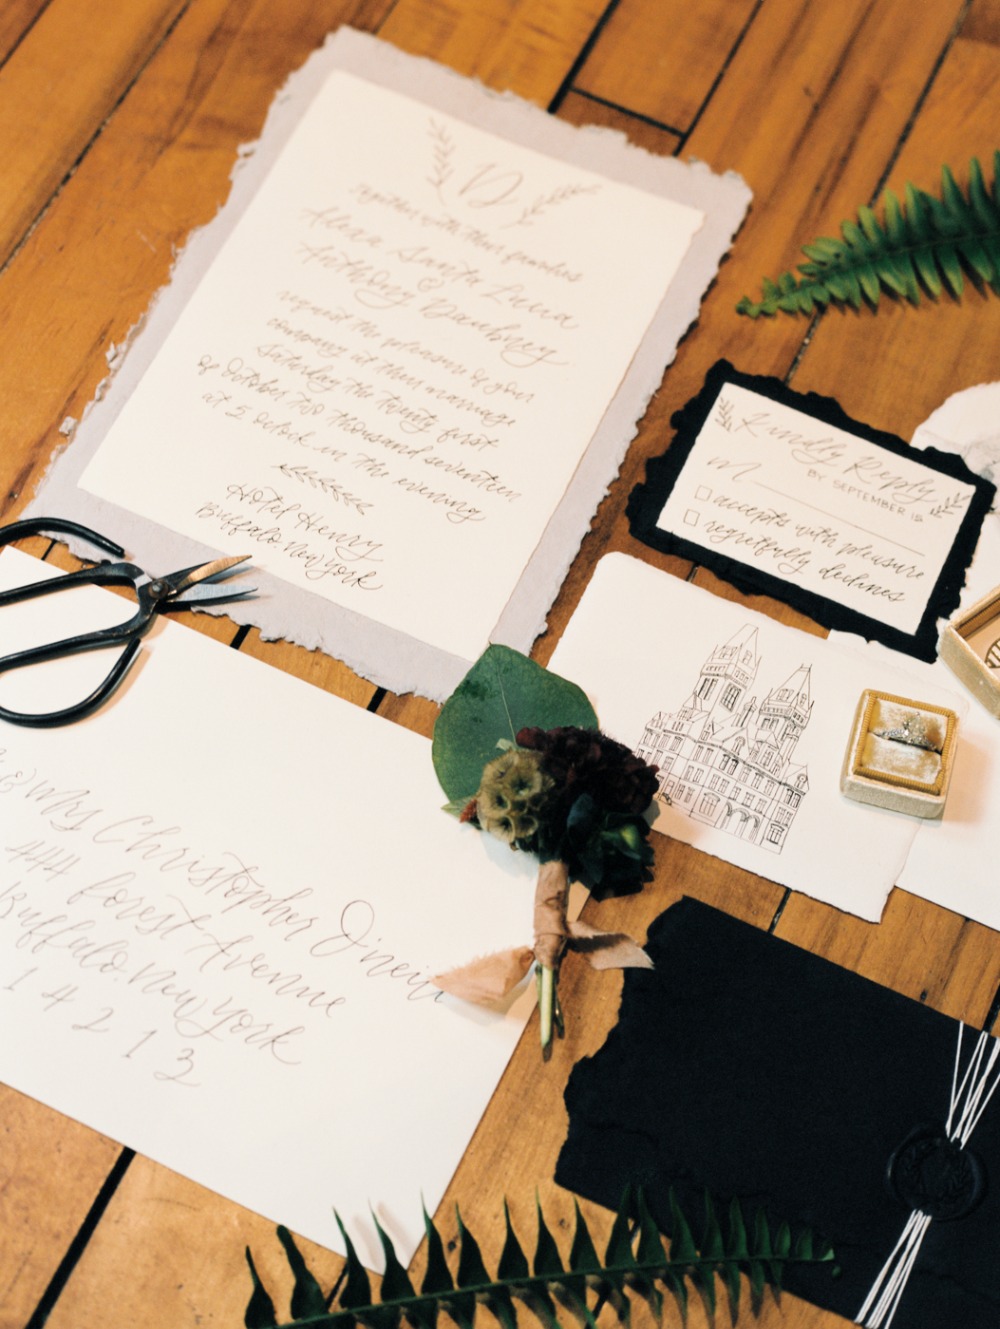 D
together with their families
Alexa Santa Lucia
Anthony Daubney
request the pleasure of your
company at their marriage
Saturday the twenty first
of October two thousand seventeen
at 5 o'clock in the evening
Hotel Henry
Buffalo. New York
Kindly Reply
BY SEPTEMBER 15
M
accepts with pleasure
regretfully declines
& Mrs Christopher O'neill
444 Forest Avenue
Buffalo. New York
14213